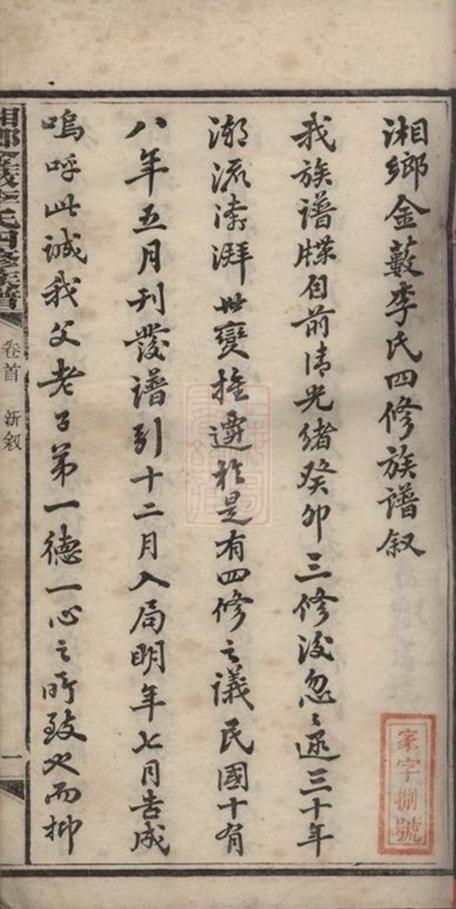 湘鄉金藪李氏四修族譜叙
我族譜牒自前清光緒癸卯三修後忽〻逾三十年
潮流澎湃世變推遷於是有四修之議民國十有
八年五月刊發譜引十二月入局明年七月告成
嗚呼此誠我父老子弟一德一心之所致也而抑
湘鄉金藪李氏四修族譜
卷首 新叙
一
家字捌號